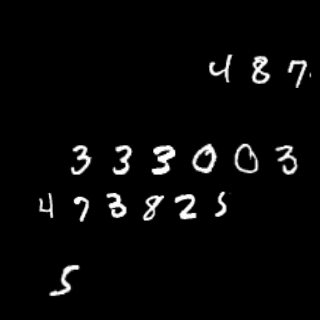 487
333003
473825
5